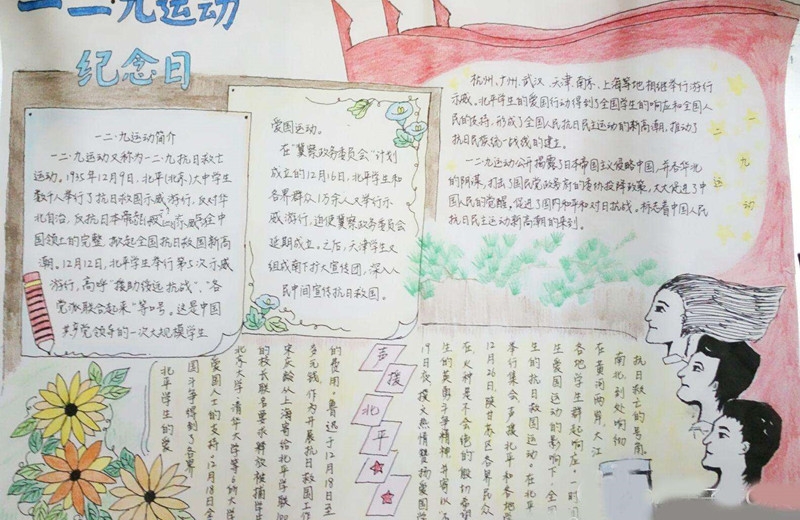 一二·九运动
纪念日
一二·九运动简介
一二·九运动又称为一二·九抗日救亡
运动。1935年12月9日,北平(北京)大中学生
数千人举行了抗日救国示威游行,反对华
北自治,反抗日本帝国
国领土的完整,掀起全国抗日救国新高
潮。12月12日,北平学生举行第5次示威
游行,高呼“援助绥远抗战”,“各
党派联合起来”等口号。这是中国
共产党领导的一次大规模学生
爱国运动。
在“冀察政务委员会”计划
成立的12月16日,北平学生和
各界群众1万余人又举行示
威游行,迫使冀察政务委员会
延期成立。之后,天津学生又
组成南下扩大宣传团,深入人
民中间宣传抗日救国。
杭州、广州、武汉、天津、南京、上海等地相继举行游行
示威。北平学生的爱国行动得到了全国学生的响应和全国人
民的支持,形成了全国人民抗日民主运动的新高潮,推动了
抗日民族统一战线的建立。
一二·九运动公开揭露了日本帝国主义侵略中国,并吞华北
的阴谋,打击了国民党政府的妥协投降政策,大大促进了中
国人民的觉醒,促进了国内和平和对日抗战。标志着中国人民
抗日民主运动新高潮的来到。
一二九运动
抗日救亡的号角
南北到处响彻
在黄河两岸、大江
各地学生群起响应,一时间
生爱国运动的影响下,全国
生的抗日救国运动。在北平
举行集会,声援北平和各地学
12月26日,陕甘苏区各界民众
在,火种是不会绝的殷切希望
生的英勇斗争精神,并寄以“
19日夜撰文热情赞扬爱国学
声援北平
的费用。鲁迅于12月18日至
多元钱,作为开展抗日救国工作
宋庆龄从上海寄给北平学联100
的校长联名要求释放被捕学生
北京大学、清华大学等6所大学
爱国人士的支持,12月18日全
国斗争得到了各界
北平学生的爱